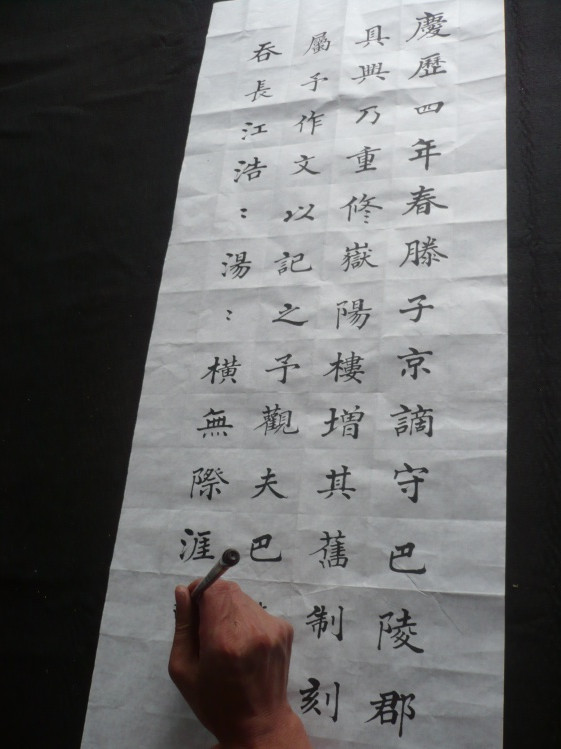 慶歷四年春滕子京謫守巴陵郡
具興乃重修嶽陽樓增其舊制刻
屬予作文以記之予觀夫巴
吞長江浩：湯：橫無際涯